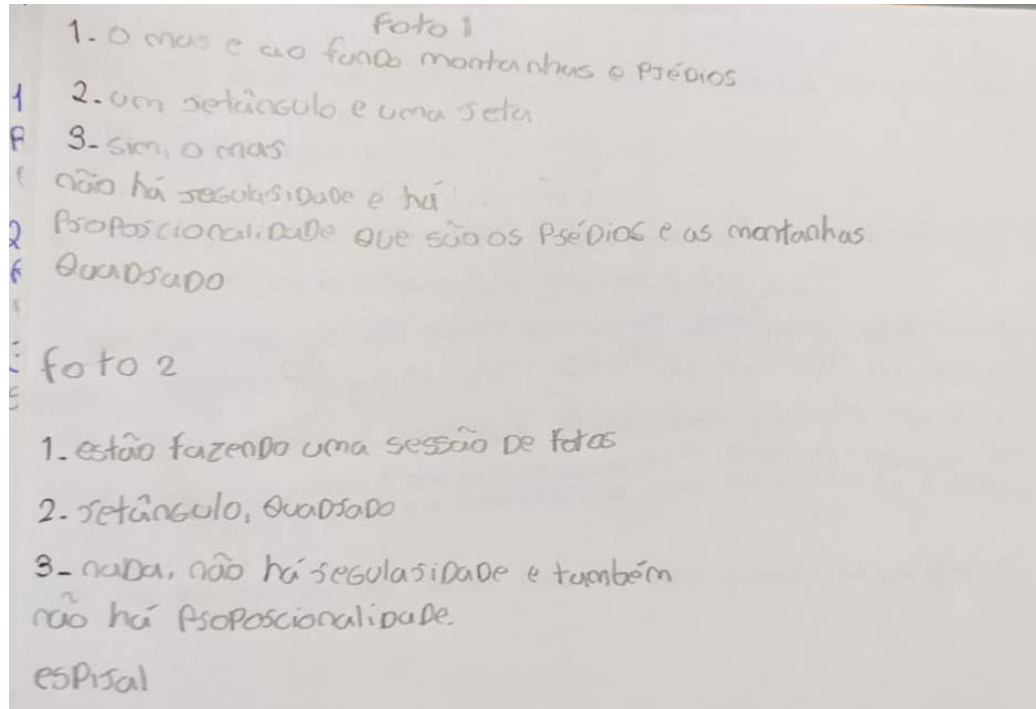 Foto 1
1. O mar e ao fundo montanhas e Prédios
2. um retângulo e uma reta
3- sim, o mar
não há regularidade e há
Proporcionalidade que são os Prédios e as montanhas
Quadrado
foto 2
1. estão fazendo uma sessão de fotos
2. retângulo, Quadrado
3- nada, não há regularidade e também
não há Proporcionalidade.
esPiral